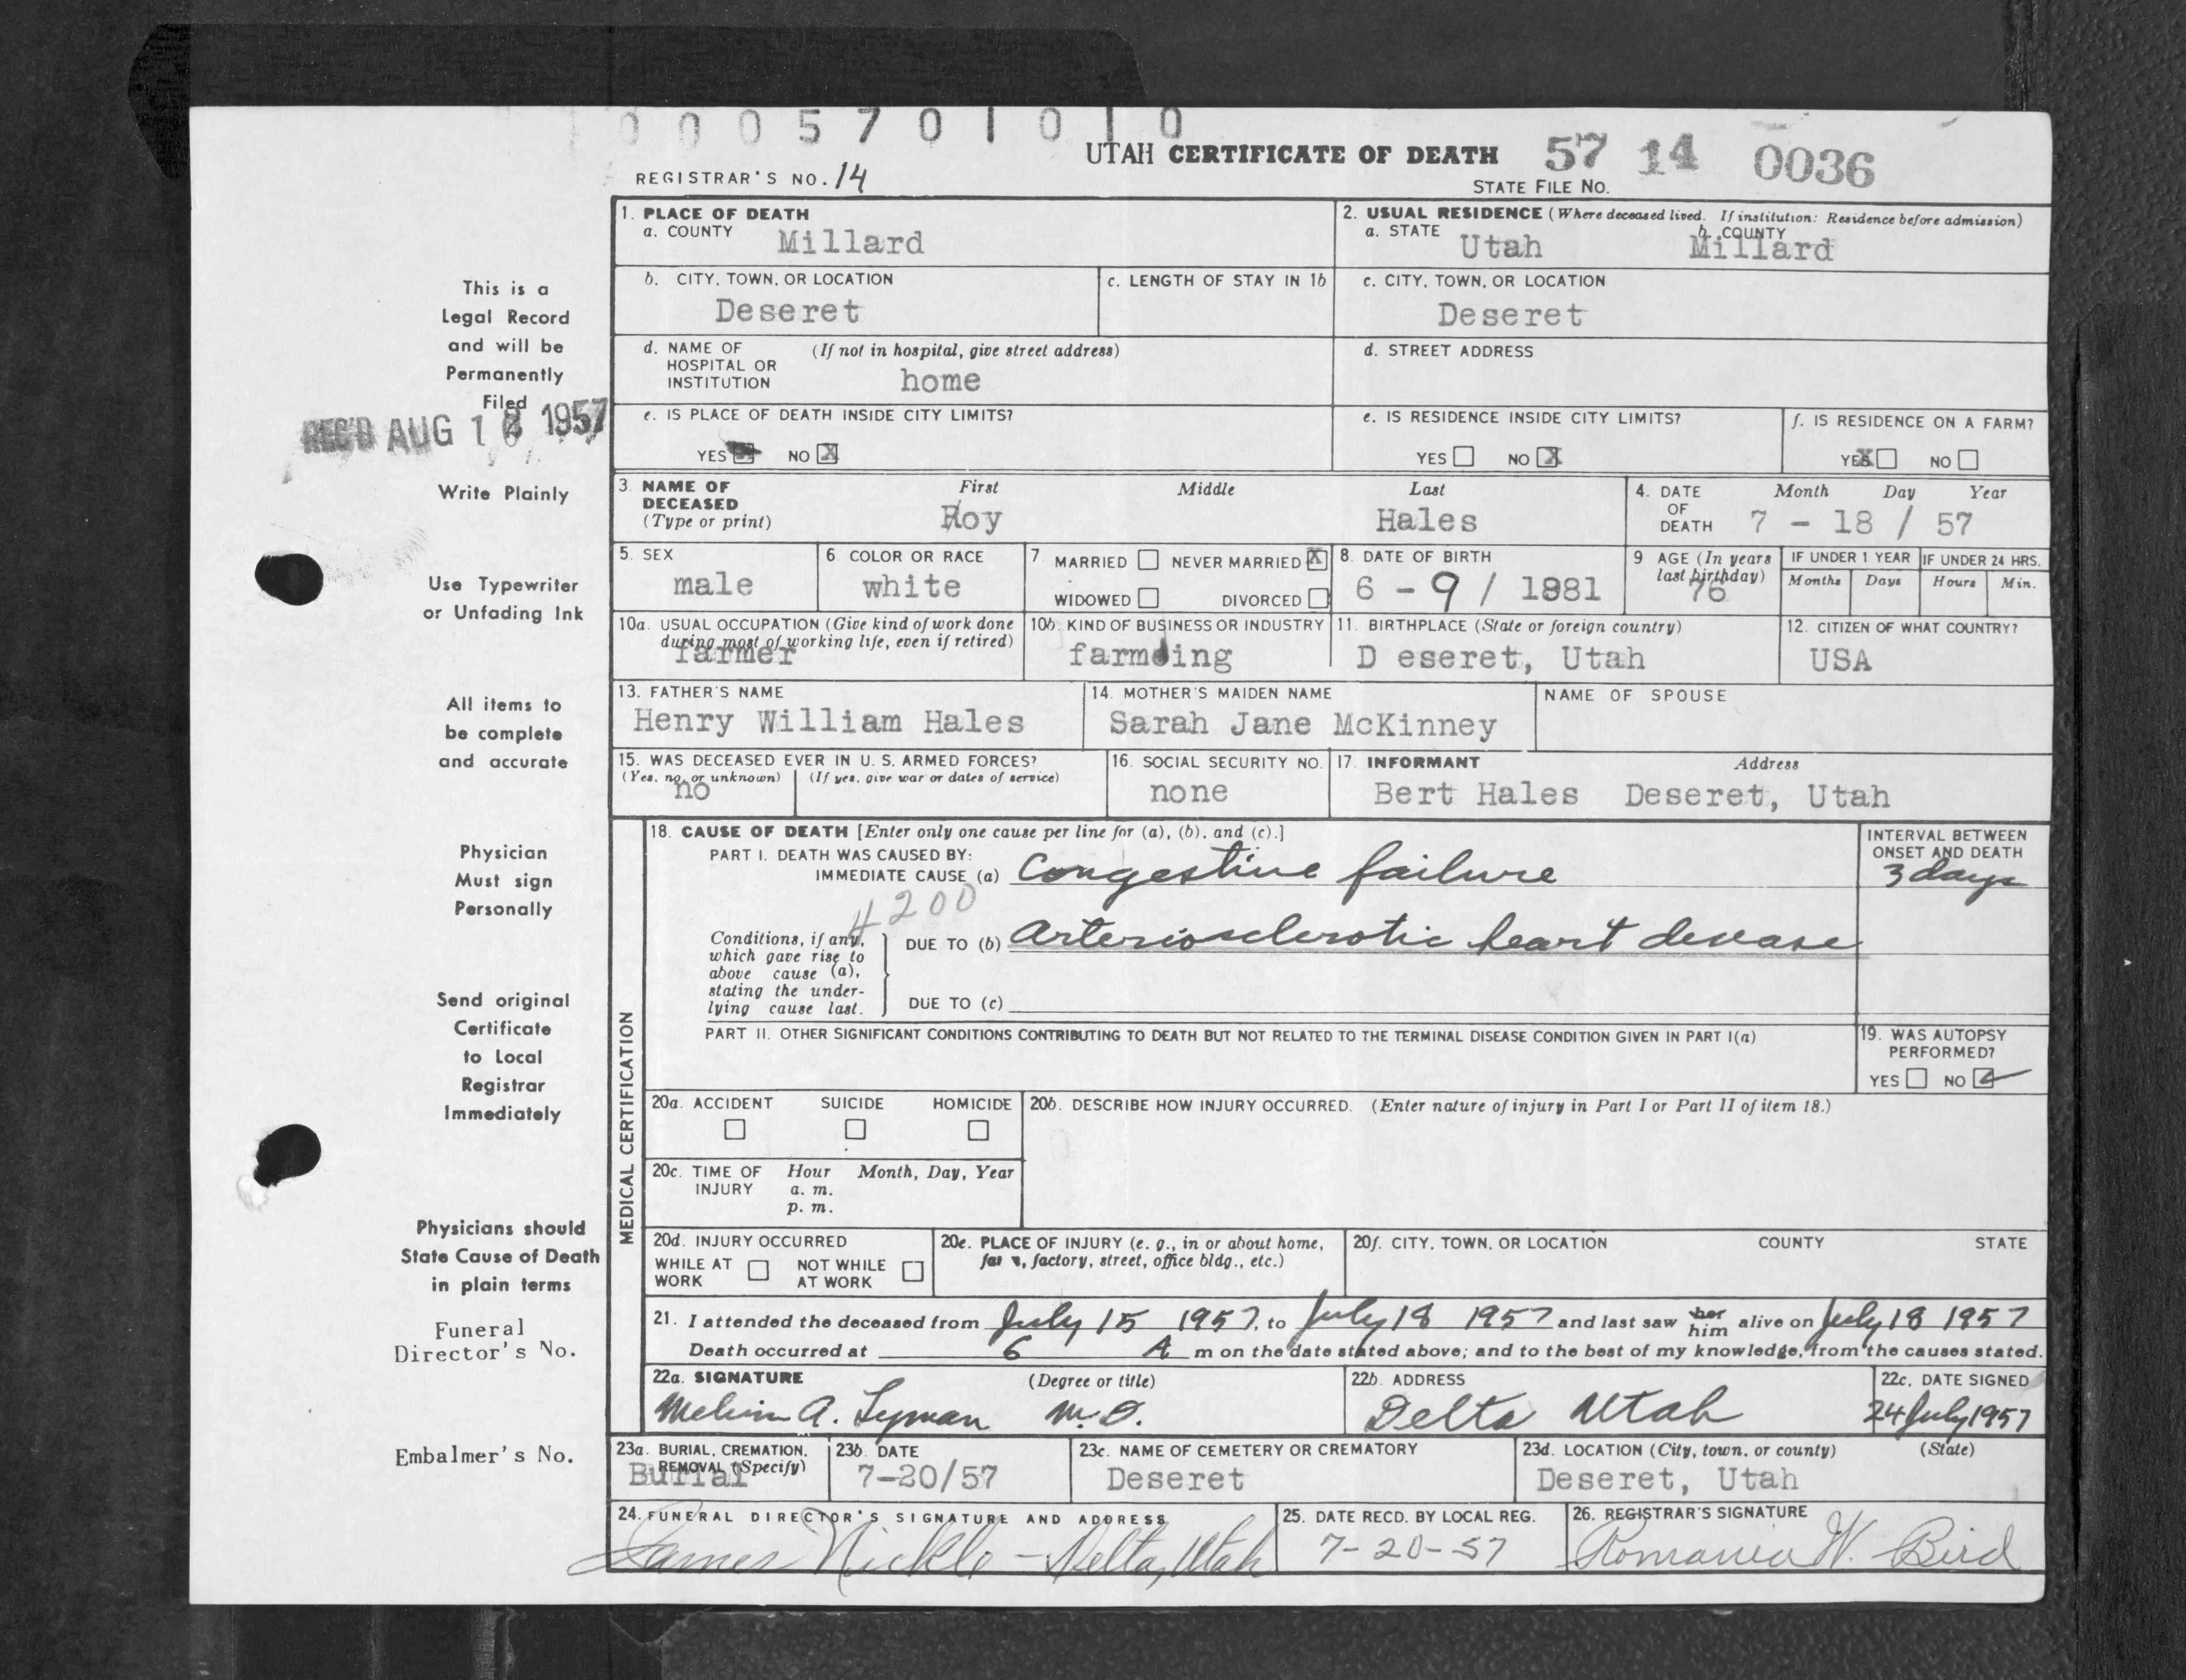 0 0 0 5 7 0 1 0 1 0
UTAH CERTIFICATE OF DEATH 57 14 0036
REGISTRAR'S NO. 14
STATE FILE NO.
This is a
Legal Record
and will be
Permanently
Filed
REC'D AUG 1 1957
Write Plainly
Use Typewriter
or Unfading Ink
All items to
be complete
and accurate
Physician
Must sign
Personally
Send original
Certificate
to Local
Registrar
Immediately
Physicians should
State Cause of Death
in plain terms
Funeral
Director's No.
Embalmer's No.
1. PLACE OF DEATH
a. COUNTY Millard
2. USUAL RESIDENCE (Where deceased lived. If institution: Residence before admission)
a. STATE Utah b. COUNTY Millard
b. CITY, TOWN, OR LOCATION
Deseret
c. LENGTH OF STAY IN 1b
c. CITY, TOWN, OR LOCATION
Deseret
d. NAME OF (If not in hospital, give street address)
HOSPITAL OR
INSTITUTION home
d. STREET ADDRESS
e. IS PLACE OF DEATH INSIDE CITY LIMITS?
YES NO X
e. IS RESIDENCE INSIDE CITY LIMITS?
YES NO X
f. IS RESIDENCE ON A FARM?
YES X NO
3. NAME OF First Middle Last
DECEASED
(Type or print) Roy Hales
4. DATE Month Day Year
OF
DEATH 7 - 18 / 57
5. SEX
male
6. COLOR OR RACE
white
7 MARRIED NEVER MARRIED X
WIDOWED DIVORCED
8. DATE OF BIRTH
6 - 9 / 1881
9 AGE (In years
last birthday)
76
IF UNDER 1 YEAR IF UNDER 24 HRS.
Months Days Hours Min.
10a. USUAL OCCUPATION (Give kind of work done
during most of working life, even if retired)
farmer
10b. KIND OF BUSINESS OR INDUSTRY
farming
11. BIRTHPLACE (State or foreign country)
D eseret, Utah
12. CITIZEN OF WHAT COUNTRY?
USA
13. FATHER'S NAME
Henry William Hales
14. MOTHER'S MAIDEN NAME
Sarah Jane McKinney
NAME OF SPOUSE
15. WAS DECEASED EVER IN U. S. ARMED FORCES?
(Yes, no, or unknown) (If yes, give war or dates of service)
no
16. SOCIAL SECURITY NO.
none
17. INFORMANT Address
Bert Hales Deseret, Utah
MEDICAL CERTIFICATION
18. CAUSE OF DEATH [Enter only one cause per line for (a), (b), and (c).]
PART I. DEATH WAS CAUSED BY:
IMMEDIATE CAUSE (a) Congestive failure
INTERVAL BETWEEN
ONSET AND DEATH
3 days
4200
Conditions, if any,
which gave rise to
above cause (a),
stating the under-
lying cause last.
DUE TO (b) Arteriosclerotic heart disease
DUE TO (c)
PART II. OTHER SIGNIFICANT CONDITIONS CONTRIBUTING TO DEATH BUT NOT RELATED TO THE TERMINAL DISEASE CONDITION GIVEN IN PART I(a)
19. WAS AUTOPSY
PERFORMED?
YES NO ✓
20a. ACCIDENT SUICIDE HOMICIDE
20b. DESCRIBE HOW INJURY OCCURRED. (Enter nature of injury in Part I or Part II of item 18.)
20c. TIME OF Hour Month, Day, Year
INJURY a. m.
p. m.
20d. INJURY OCCURRED
WHILE AT NOT WHILE
WORK AT WORK
20e. PLACE OF INJURY (e. g., in or about home,
farm, factory, street, office bldg., etc.)
20f. CITY, TOWN, OR LOCATION COUNTY STATE
21. I attended the deceased from July 15 1957, to July 18 1957 and last saw her him alive on July 18 1957
Death occurred at 6 A m on the date stated above; and to the best of my knowledge, from the causes stated.
22a. SIGNATURE (Degree or title)
Melvin A. Lyman M.D.
22b. ADDRESS
Delta Utah
22c. DATE SIGNED
24 July 1957
23a. BURIAL, CREMATION,
REMOVAL (Specify)
Burial
23b. DATE
7-20/57
23c. NAME OF CEMETERY OR CREMATORY
Deseret
23d. LOCATION (City, town, or county) (State)
Deseret, Utah
24. FUNERAL DIRECTOR'S SIGNATURE AND ADDRESS
James Nickle - Delta, Utah
25. DATE RECD. BY LOCAL REG.
7-20-57
26. REGISTRAR'S SIGNATURE
Romania W. Bird